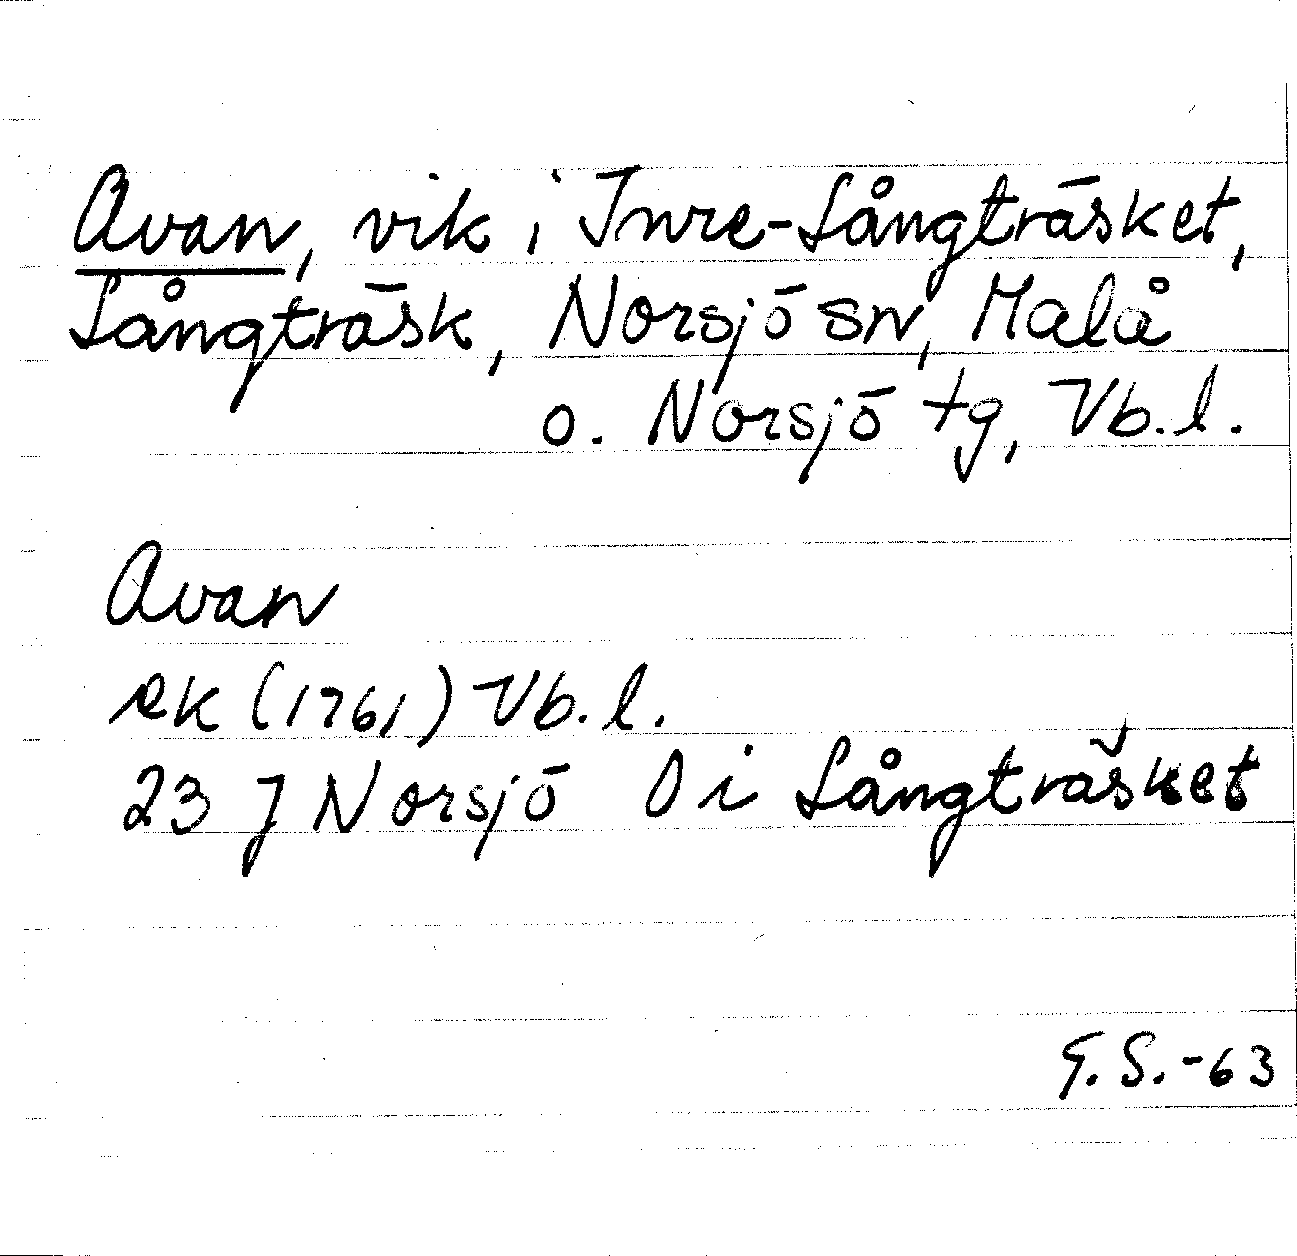 Avan, vik i Inre-Långträsket,
Långträsk, Norsjö sn, Malå
o. Norsjö tg, Vb.l.
Avan
ek (1761) Vb.l.
23 J Norsjö Ö i Långträsket
G.S.-63